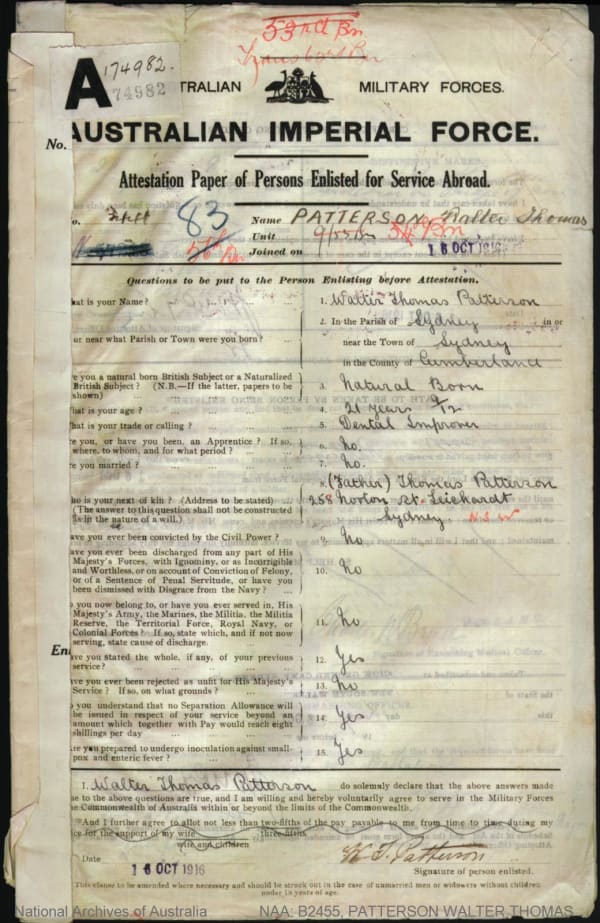 53rd Bn
174982.
A
74982
TRALIAN MILITARY FORCES.
No.
AUSTRALIAN IMPERIAL FORCE.
Attestation Paper of Persons Enlisted for Service Abroad.
o. 83 Name PATTERSON, Walter Thomas
56th Bn Unit 9/53 Bn
Joined on 16 OCT 1916
Questions to be put to the Person Enlisting before Attestation.
hat is your Name? 1. Walter Thomas Patterson
2. In the Parish of Sydney in or
or near what Parish or Town were you born? near the Town of Sydney
in the County of Cumberland
re you a natural born British Subject or a Naturalized
British Subject? (N.B.—If the latter, papers to be 3. Natural Born
shown)
hat is your age? 4. 21 years 9/12
hat is your trade or calling? 5. Dental Improver
re you, or have you been, an Apprentice? If so, 6. No.
where, to whom, and for what period?
re you married? 7. No.
8. (Father) Thomas Patterson
ho is your next of kin? (Address to be stated) 258 Norton St. Leichardt
(The answer to this question shall not be constructed
as in the nature of a will.) Sydney. N.S.W
ave you ever been convicted by the Civil Power? 9. No
ave you ever been discharged from any part of His
Majesty's Forces, with Ignominy, or as Incorrigible
and Worthless, or on account of Conviction of Felony, 10. No
or of a Sentence of Penal Servitude, or have you
been dismissed with Disgrace from the Navy?
o you now belong to, or have you ever served in, His
Majesty's Army, the Marines, the Militia, the Militia
Reserve, the Territorial Force, Royal Navy, or 11. No
Colonial Forces? If so, state which, and if not now
serving, state cause of discharge.
En
ave you stated the whole, if any, of your previous 12. Yes
service?
ave you ever been rejected as unfit for His Majesty's 13. No
Service? If so, on what grounds?
o you understand that no Separation Allowance will
be issued in respect of your service beyond an 14. Yes
amount which together with Pay would reach eight
shillings per day
re you prepared to undergo inoculation against small- 15. Yes
pox and enteric fever?
I, Walter Thomas Patterson do solemnly declare that the above answers made
e to the above questions are true, and I am willing and hereby voluntarily agree to serve in the Military Forces
e Commonwealth of Australia within or beyond the limits of the Commonwealth.
And I further agree to allot not less than two-fifths of the pay payable to me from time to time during my
ce for the support of my wife three-fifths
wife and children
Date 16 OCT 1916 W. T. Patterson
Signature of person enlisted.
This clause to be amended where necessary and should be struck out in the case of unmarried men or widowers without children
under 18 years of age.
National Archives of Australia NAA: B2455, PATTERSON WALTER THOMAS